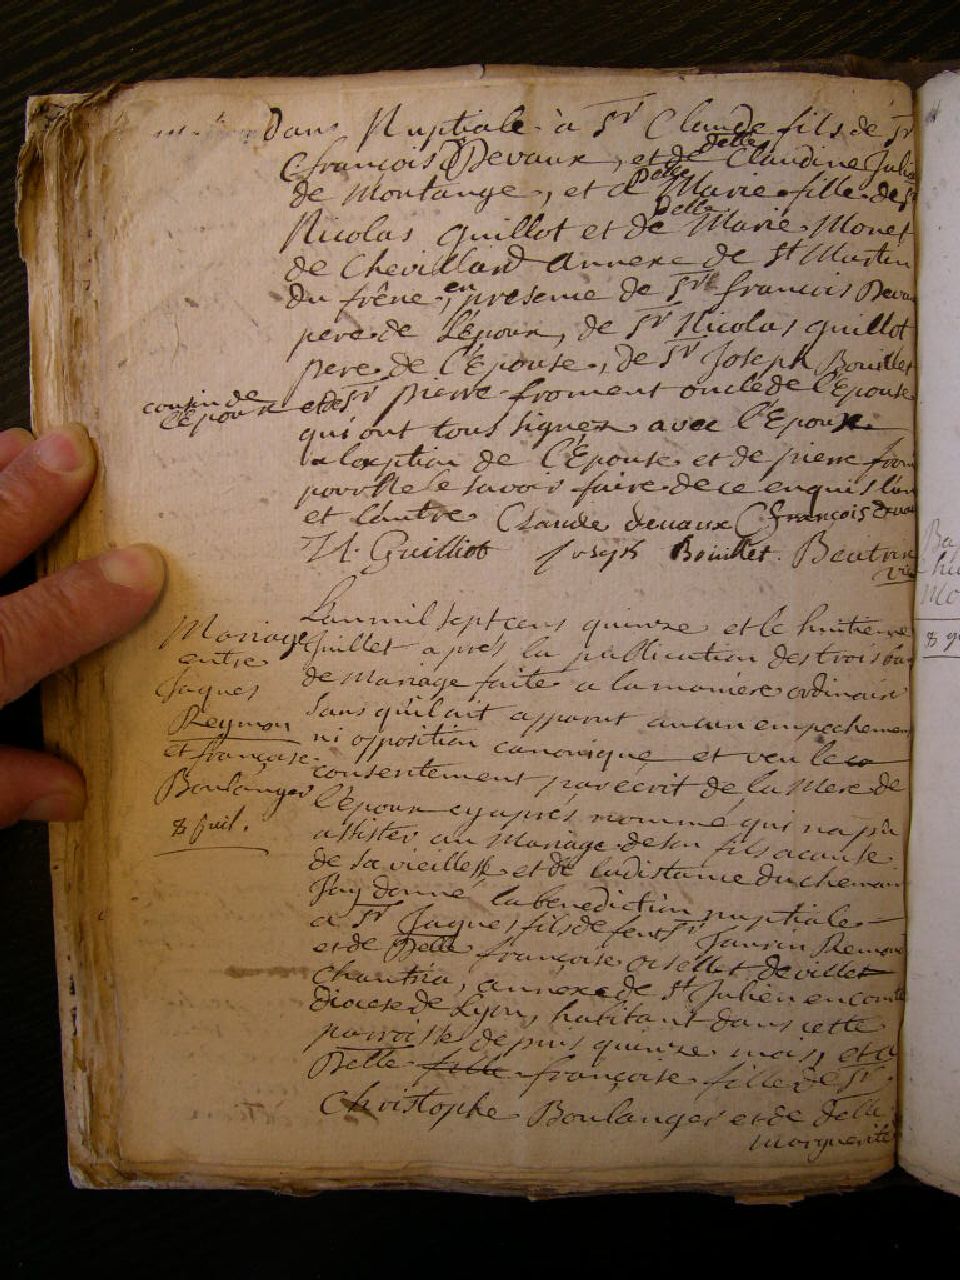 Dans Nuptiale à Sr Claude fils de Sr
C. françois Devaux, et de delle Claudine Julie
de montange, et à Delle Marie fille de Sr
Nicolas guillot et de Delle Marie Monet
de Chevillard annexe de St Martin
du frêne, en presence de Sr françois Devau
pere de l'Epoux, de Sr Nicolas guillot
pere de l'Epouse, de Sr Joseph Bouillet
cousin de l'Epoux
et de Sr pierre froment oncle de l'Epouse
qui ont tous signez avec l'Epoux
a l'exeption de l'Epouse et de pierre from
pour ne le savoir faire de ce enquis l'un
et l'autre Claude devaux C françois devau
N. Guilliot Joseph Bouillet. Beatrix
vic
Mariage
entre
Jaques
Reymon
et françoise
Boulanger
8 Juil.
L'an mil sept cens quinze et le huitieme
Juillet après la publication des trois ban
de mariage faite a la maniere ordinaire
sans qu'il ait apparut aucun empechemen
ni opposition canonique et veu le
consentement par ecrit de la Mere de
l'époux cy après nommé qui n'a pu
assister au mariage de son fils a cause
de sa vieillesse et de la distance du chemin
J'ay donné la benediction nuptiale
a Sr Jaques fils de feu Sr Remond
et de Delle françoise oisellet de villet
Chantria, annexe de St Julien en comté
diocese de Lyon, habitant dans cette
parroisse depuis quinze mois, et a
Delle fille françoise fille de Sr
Christophe Boulanger et de delle
marguerite